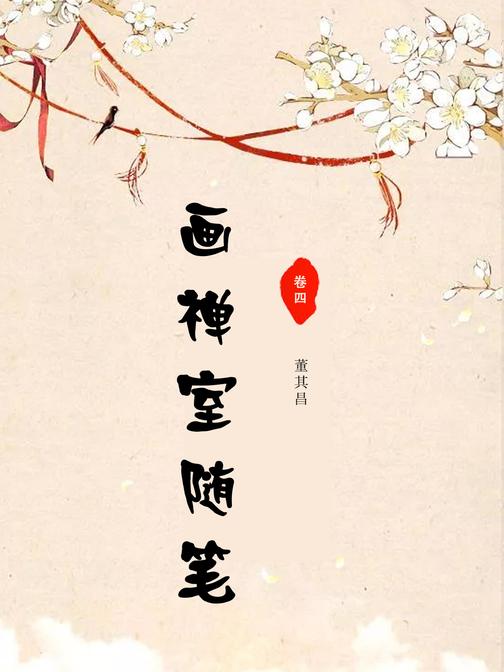 画禅室随笔
卷四
董其昌